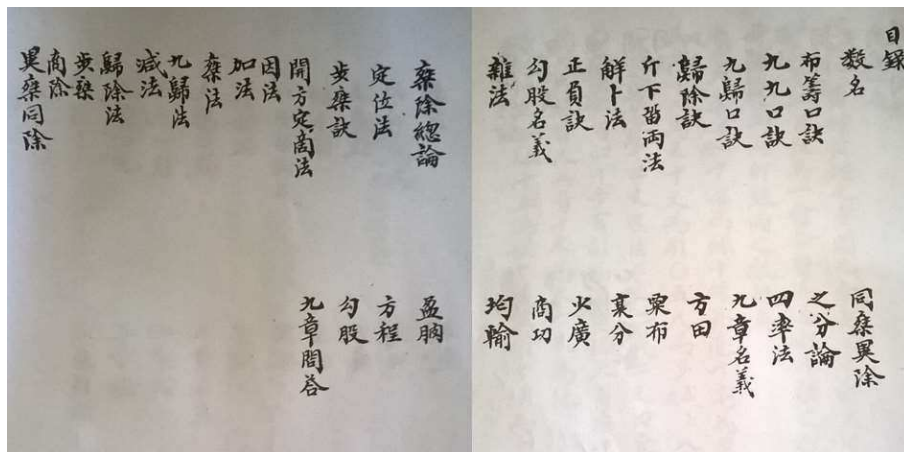 目錄
數名
布籌口訣
九九口訣
九歸口訣
歸除訣
斤下畱両法
解卜法
正負訣
勾股名義
雜法
乘除總論
定位法
步乘訣
開方定商法
因法
加法
乘法
九歸法
減法
歸除法
步乘
商除
異乘同除
同乘異除
之分論
四率法
九章名義
方田
粟布
衰分
少廣
商功
均輸
盈朒
方程
勾股
九章問答